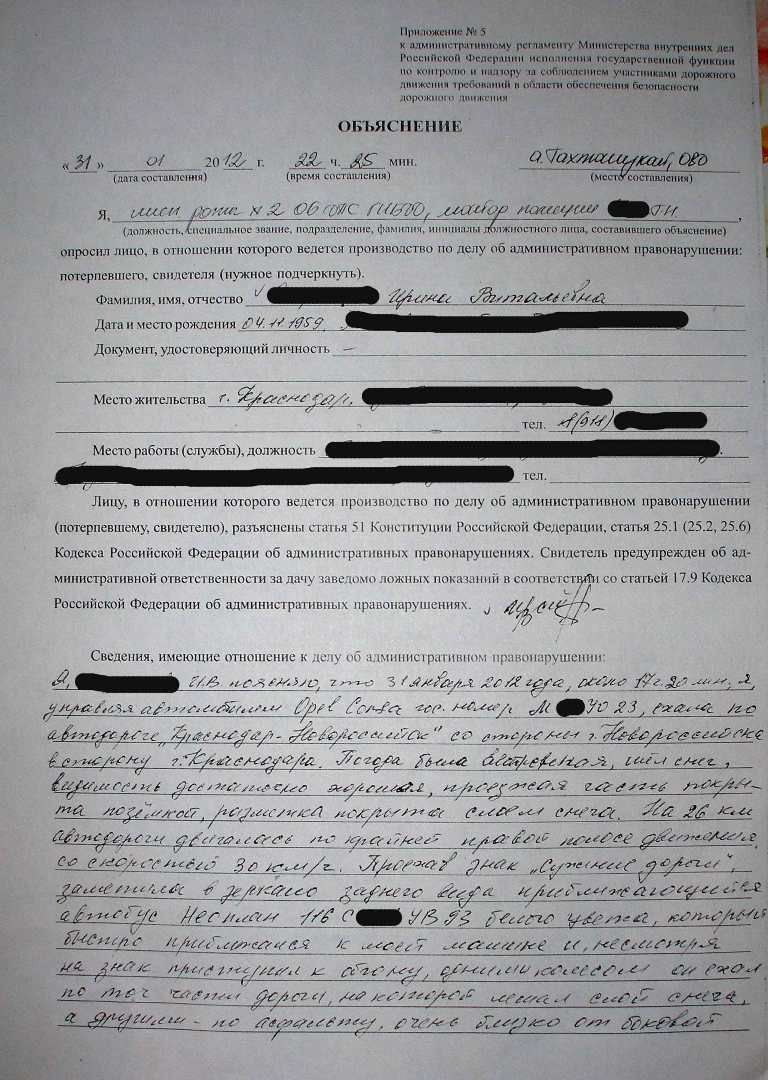 Приложение № 5
к административному регламенту Министерства внутренних дел
Российской Федерации исполнения государственной функции
по контролю и надзору за соблюдением участниками дорожного
движения требований в области обеспечения безопасности
дорожного движения
ОБЪЯСНЕНИЕ
« 31 » 01 2012 г. 22 ч. 25 мин. а. Тахтамукай, ОВО
(дата составления) (время составления) (место составления)
Я, роты № 2 ОБ ДПС ГИБДД, майор полиции Г.Н. ,
(должность, специальное звание, подразделение, фамилия, инициалы должностного лица, составившего объяснение)
опросил лицо, в отношении которого ведется производство по делу об административном правонарушении:
потерпевшего, свидетеля (нужное подчеркнуть).
Фамилия, имя, отчество Ирина Витальевна
Дата и место рождения 04.11.1959,
Документ, удостоверяющий личность –
Место жительства г. Краснодар,
тел. 8(918)
Место работы (службы), должность
тел.
Лицу, в отношении которого ведется производство по делу об административном правонарушении
(потерпевшему, свидетелю), разъяснены статья 51 Конституции Российской Федерации, статья 25.1 (25.2, 25.6)
Кодекса Российской Федерации об административных правонарушениях. Свидетель предупрежден об ад-
министративной ответственности за дачу заведомо ложных показаний в соответствии со статьей 17.9 Кодекса
Российской Федерации об административных правонарушениях.
Сведения, имеющие отношение к делу об административном правонарушении:
Я, И.В поясняю, что 31 января 2012 года, около 17ч.20 мин, я,
управляя автомобилем Opel Corsa гос. номер М УО 23, ехала по
автодороге „Краснодар-Новороссийск" со стороны г. Новороссийска
в сторону г. Краснодара. Погода была ветреная, шёл снег,
видимость достаточно хорошая, проезжая часть покры-
та позёмкой, разметка покрыта слоем снега. На 26 км
автодороги двигалась по крайней правой полосе движения,
со скоростью 30 км/ч. Проехав знак „Сужение дороги",
заметила в зеркало заднего вида приближающийся
автобус Неоплан 116 С УВ 93 белого цвета, который
быстро приближался к моей машине и, несмотря
на знак приступил к обгону, одними колесом он ехал
по той части дороги, на которой лежал слой снега,
а другими – по асфальту, очень близко от боковой